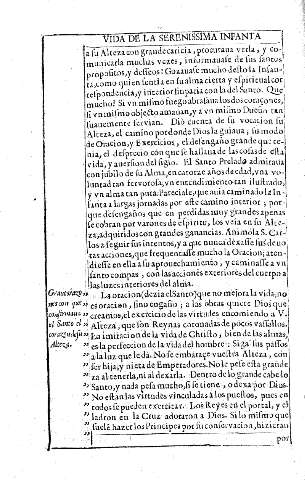 VIDA DE LA SERENISSIMA INFANTA
a su Alteza con grande caricia, procuraua verla, y co-
municarla muchas vezes, informauase de sus santos
propositos, y desseos: Gozauase mucho desto la Infan-
ta, como quien sentia en su alma cierta y espiritual cor-
respondencia, y interior simpatia con la del Santo. Que
mucho? Si vn mismo fuego abrasaua los dos coraçones,
si vn mismo objecto amauan, y a vn mismo Dueño tan
suauemente seruian. Dió cuenta de su vocacion su
Alteza, el camino por donde Dios la guiaua, su modo
de Oracion, y Exercicios, el desengaño grande que te-
nia, el desprecio con que se hallaua de las cosas desta
vida, y auersion del siglo. El Santo Prelado admiraua
con jubilo de su Alma, en catorze años de edad, vna vo-
luntad tan feruorosa, vn entendimiento tan ilustrado,
y vn alma tan pura. Pareciale, que auia caminado la In-
fanta a largas jornadas por este camino interior; por-
que desengaños que en perdidas muy grandes apenas
se cobran por varones de espiritu, los veia en su Alte-
za, adquiridos con grandes ganancias. Animóla S. Car-
los a seguir sus intentos, y a que nunca dexasse sus deuo-
tas acciones, que frequentasse mucho la Oracion, aten-
diesse en ella a su aprouechamiento, y caminasse a vn
santo compas, con las acciones exteriores del cuerpo a
las luzes interiores del alma.
La oracion (dezia el Santo) que no mejora la vida, no
es oracion, sino engaño; a las obras quiere Dios que
creamos, el exercicio de las virtudes encomiendo a V.
Alteza, que son Reynas coronadas de pocos vassallos.
La imitacion de la vida de Christo, bien de las almas,
es la perfeccion de la vida del hombre: Siga sus passos
a la luz que le da. No se embaraçe vuestra Alteza, con
ser hija, y nieta de Emperadores. No le pese esta grande-
za al tenerla, ni al dexarla. Dentro de lo grande cabe lo
Santo, y nada pesa mucho, si se tiene, o dexa por Dios.
No estan las virtudes vinculadas a los pueblos, pues en
todos se pueden exercitar. Los Reyes en el portal, y el
ladron en la Cruz adoraron a Dios. Si lo mismo que
suelē hazer los Principes por su conseruacion, hizieran
por